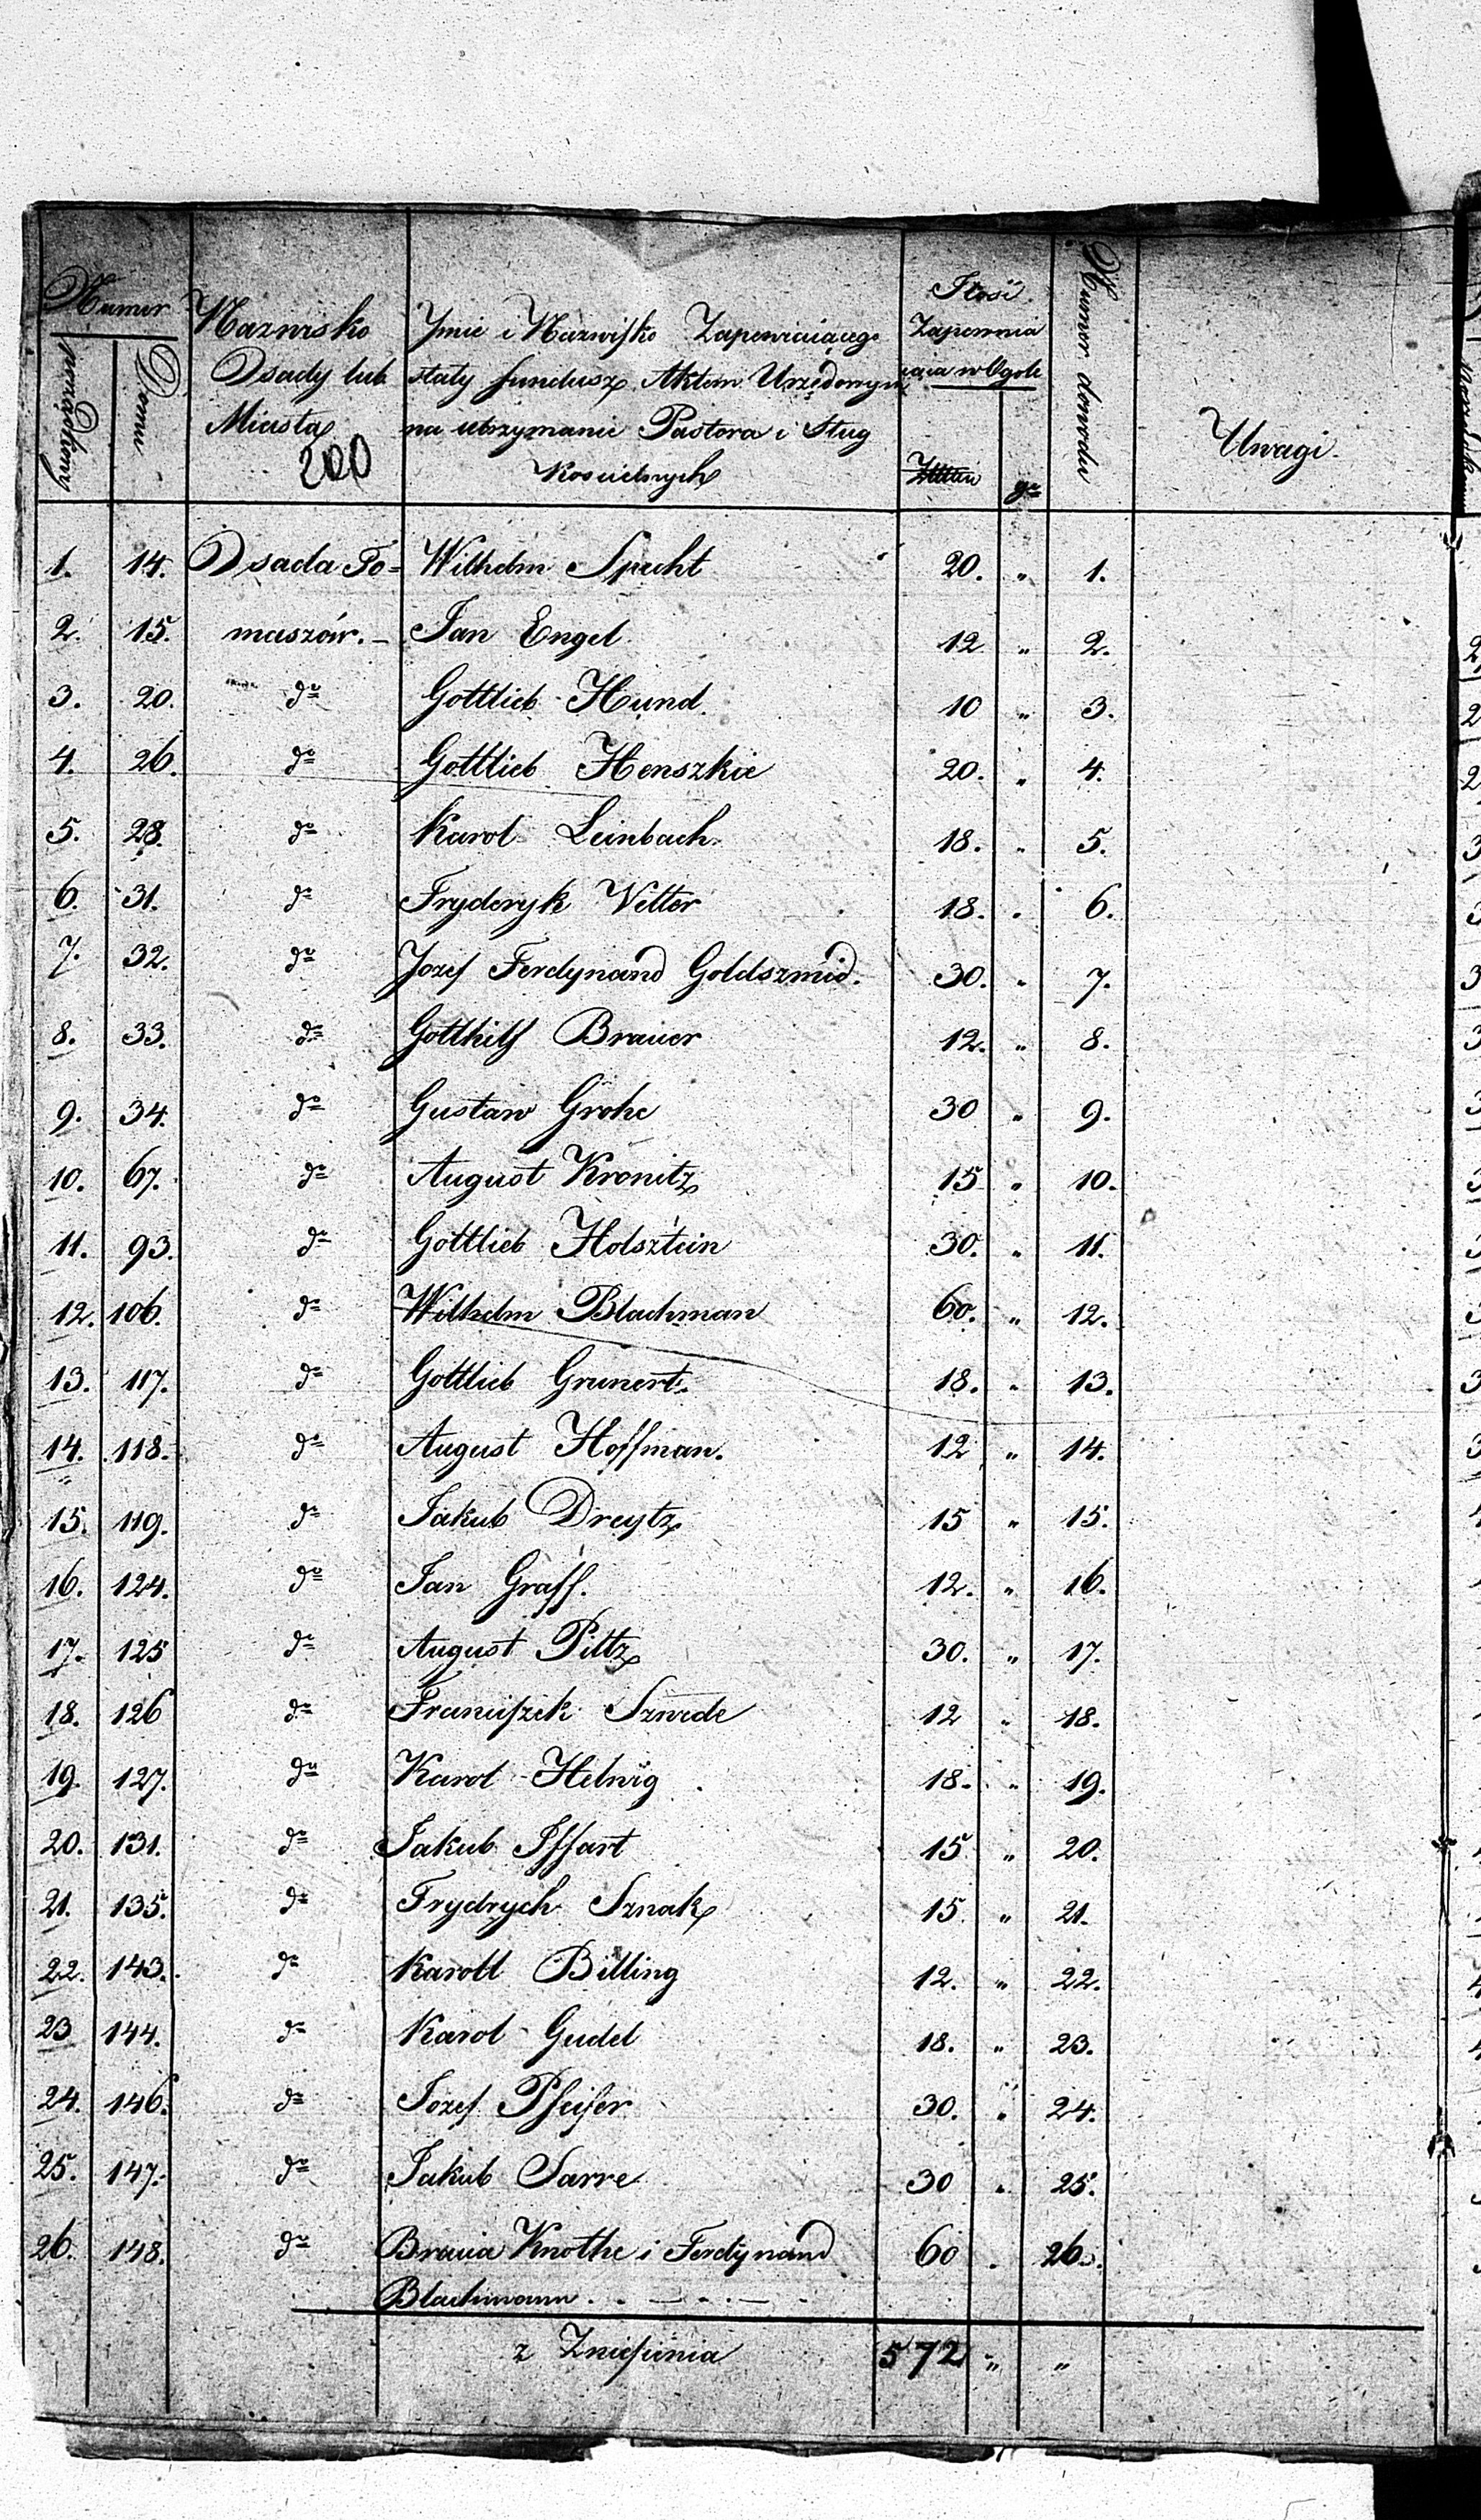 Numer
porządkowy
Domu
Nazwisko
Osady lub
Miasta
200
Ymie i Nazwisko Zapewniaiącego
stały fundusz Aktem Urzędowym
na utrzymanie Pastora i Sług
Kościelnych
Ilość
Zapewnia
iąca w Ogóle
gr
Numer dowodu
Uwagi.
1. 14. Osada To= Wilhelm Specht 20. „ 1.
2. 15. maszów. - Jan Engel 12 „ 2.
3. 20. do Gottlieb Hund. 10 „ 3.
4. 26. do Gottlieb Henszkie 20. „ 4.
5. 28. do Karol Leinbach. 18. „ 5.
6. 31. do Fryderyk Vetter 18. „ 6.
7. 32. do Jozef Ferdynand Goldszmid. 30. „ 7.
8. 33. do Gotthilf Brauer 12. „ 8.
9. 34. do Gustaw Grohe 30 „ 9.
10. 67. do August Kronitz 15 „ 10.
11. 93. do Gottlieb Holsztein 30. „ 11.
12. 106. do Wilhelm Blachman 60. „ 12.
13. 117. do Gottlieb Grunert. 18. „ 13.
14. 118. do August Hoffman. 12 „ 14.
15. 119. do Jakub Dreytz 15 „ 15.
16. 124. do Jan Graff. 12. „ 16.
17. 125 do August Piltz 30. „ 17.
18. 126 do Franciszek Szwede 12 „ 18.
19. 127. do Karol Helwig 18. „ 19.
20. 131. do Jakub Iffart 15 „ 20.
21. 135. do Frydrych Sznak 15 „ 21.
22. 143. do Karoll Billing 12. „ 22.
23 144. do Karol Gudel 18. „ 23.
24. 146. do Jozef Pfeifer 30. „ 24.
25. 147. do Jakub Sarre 30 „ 25.
26. 148. do Bracia Knothe i Ferdynand 60 „ 26.
Blachmann
z Zniesienia 572 „ „